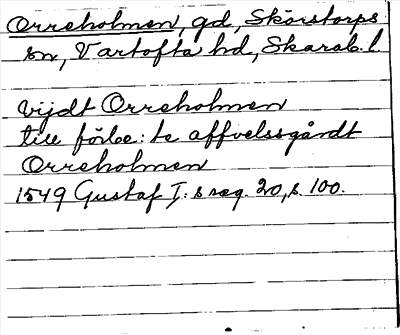 Orreholmen, gd, Skörstorps
sn, Vartofta hd, Skarab. l.
vijdt Orreholmen
till förbe:te affvelssgårdt
Orreholmen
1549 Gustaf I:s reg. 20, s. 100.